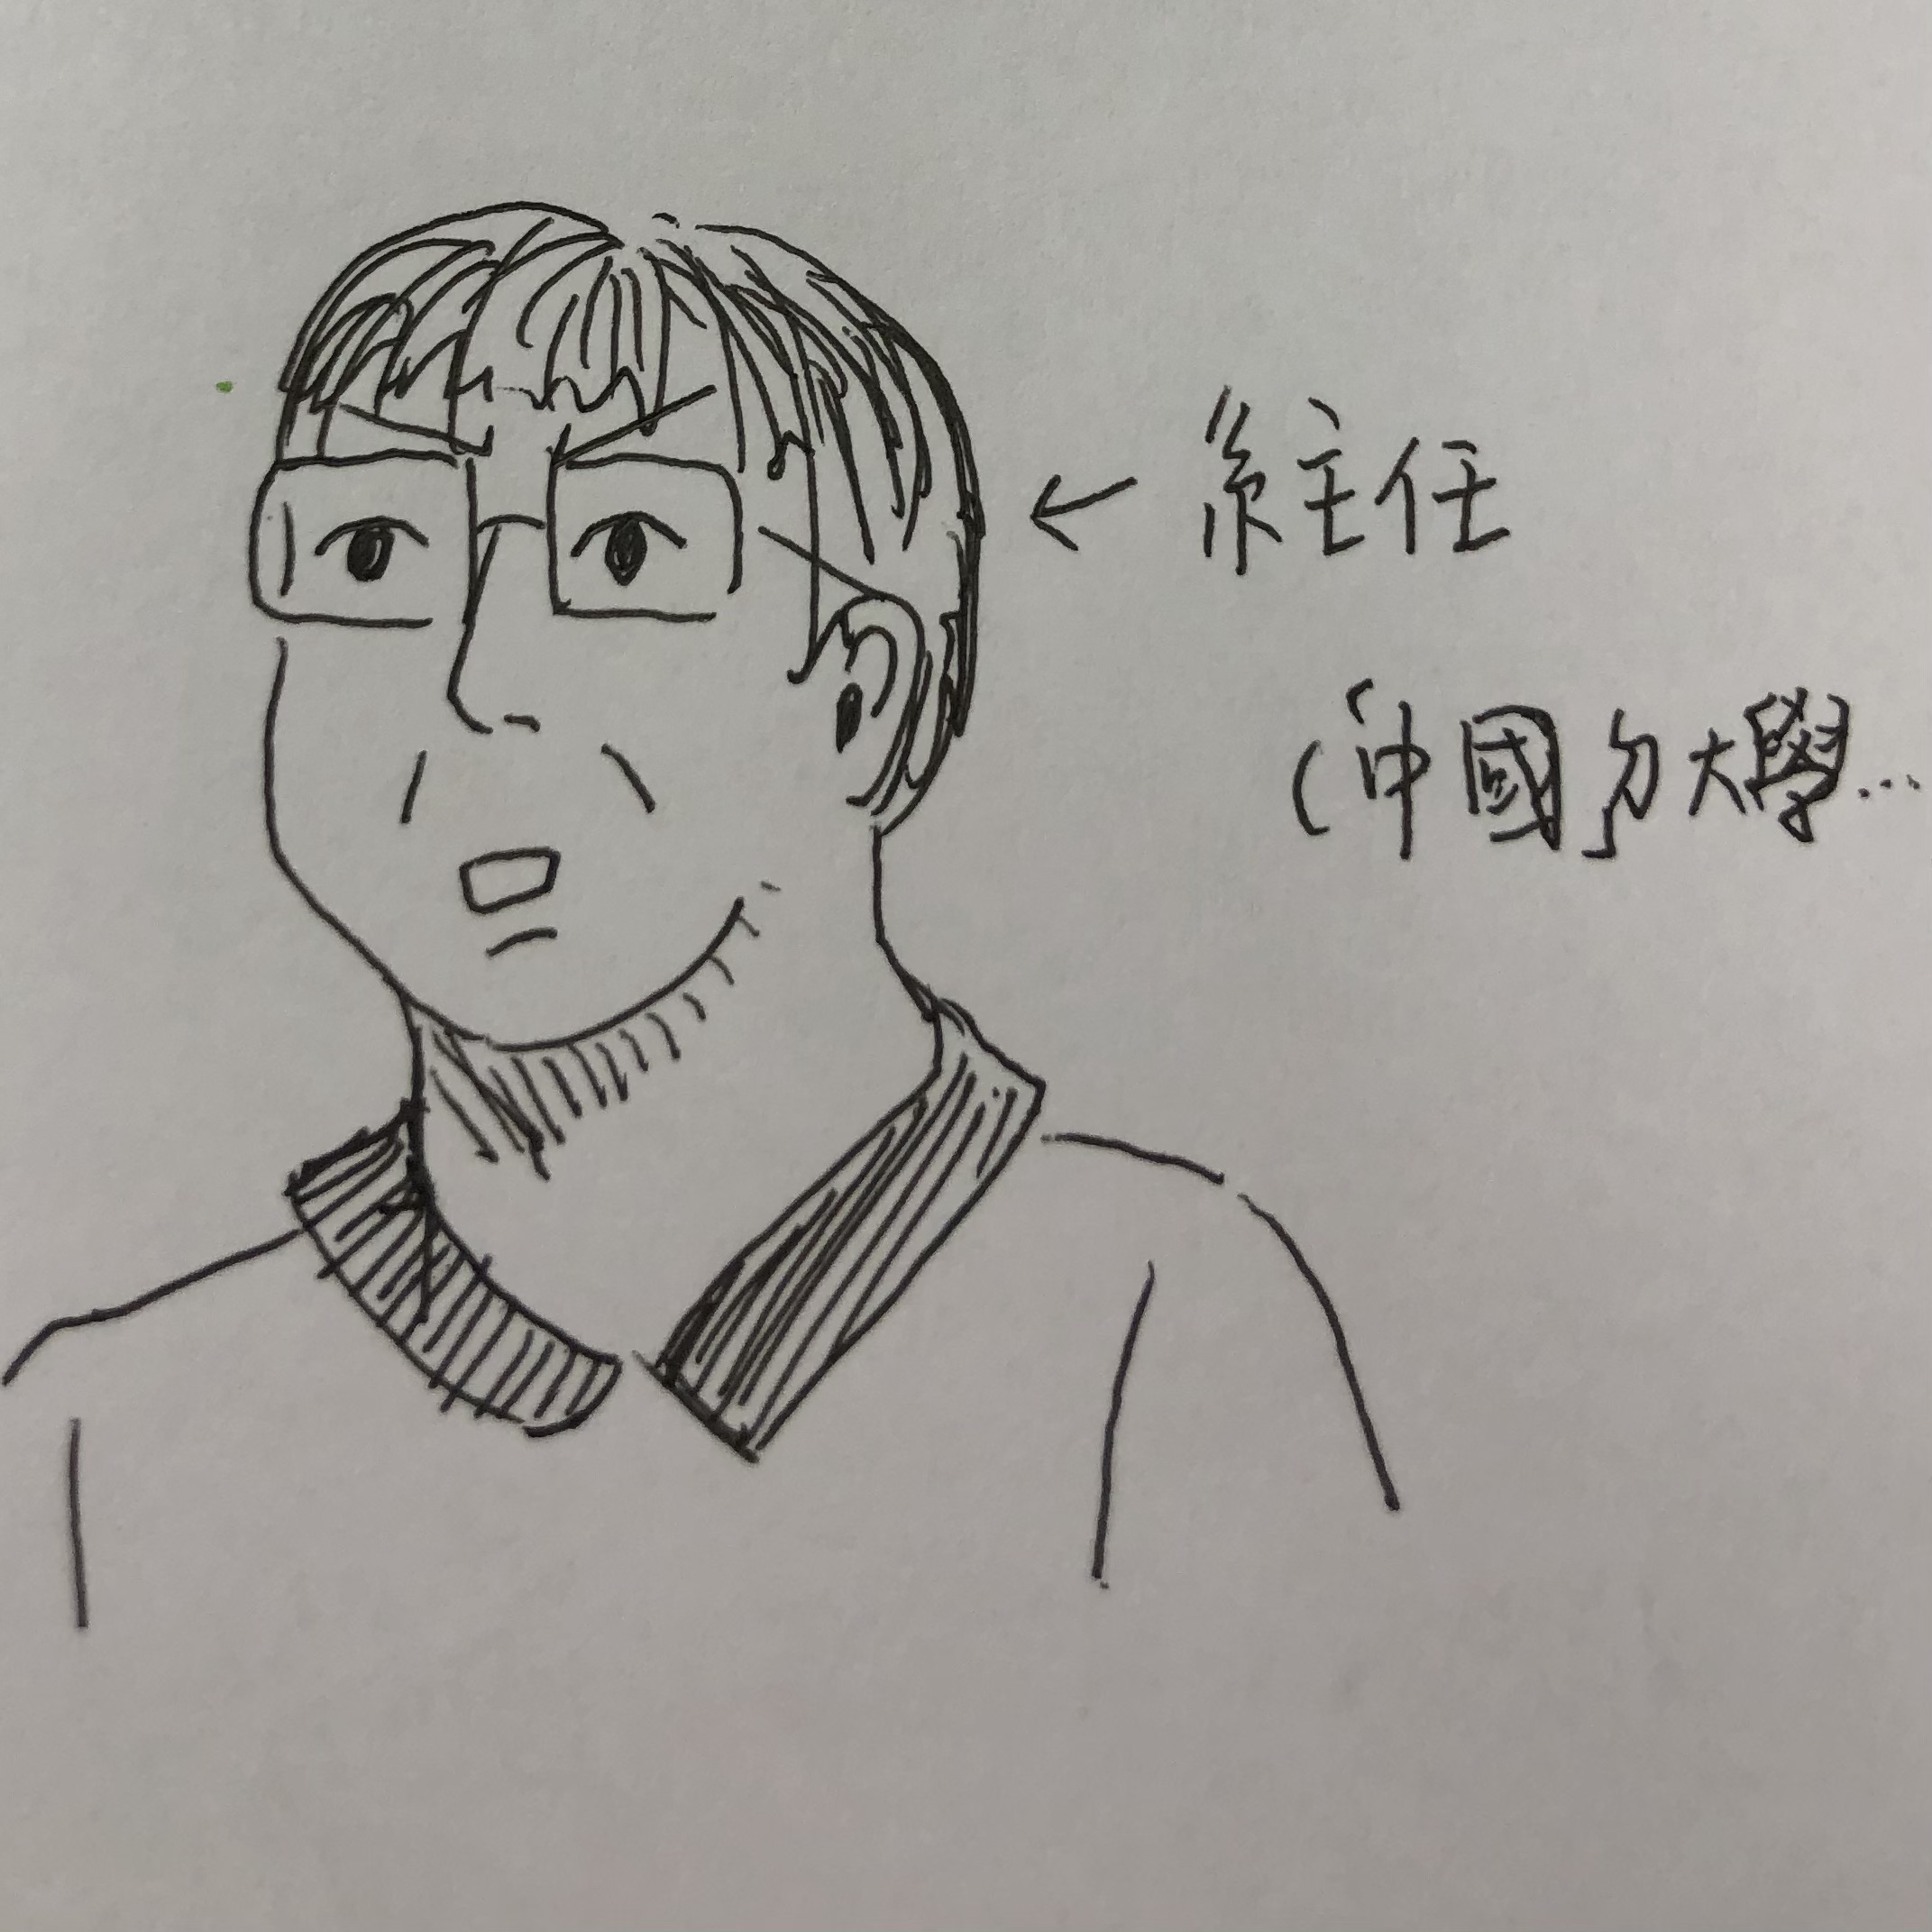 ← 系主任
(「中國」ㄉ大學...